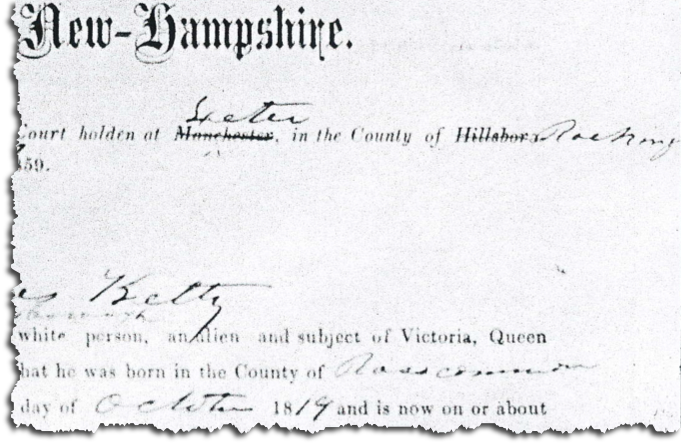 New-Hampshire.
Exeter
Court holden at Manchester, in the County of Hillsboro Rocking
859.
es Kelly
white person, an alien and subject of Victoria, Queen
hat he was born in the County of Roscommon
day of October 1819 and is now on or about